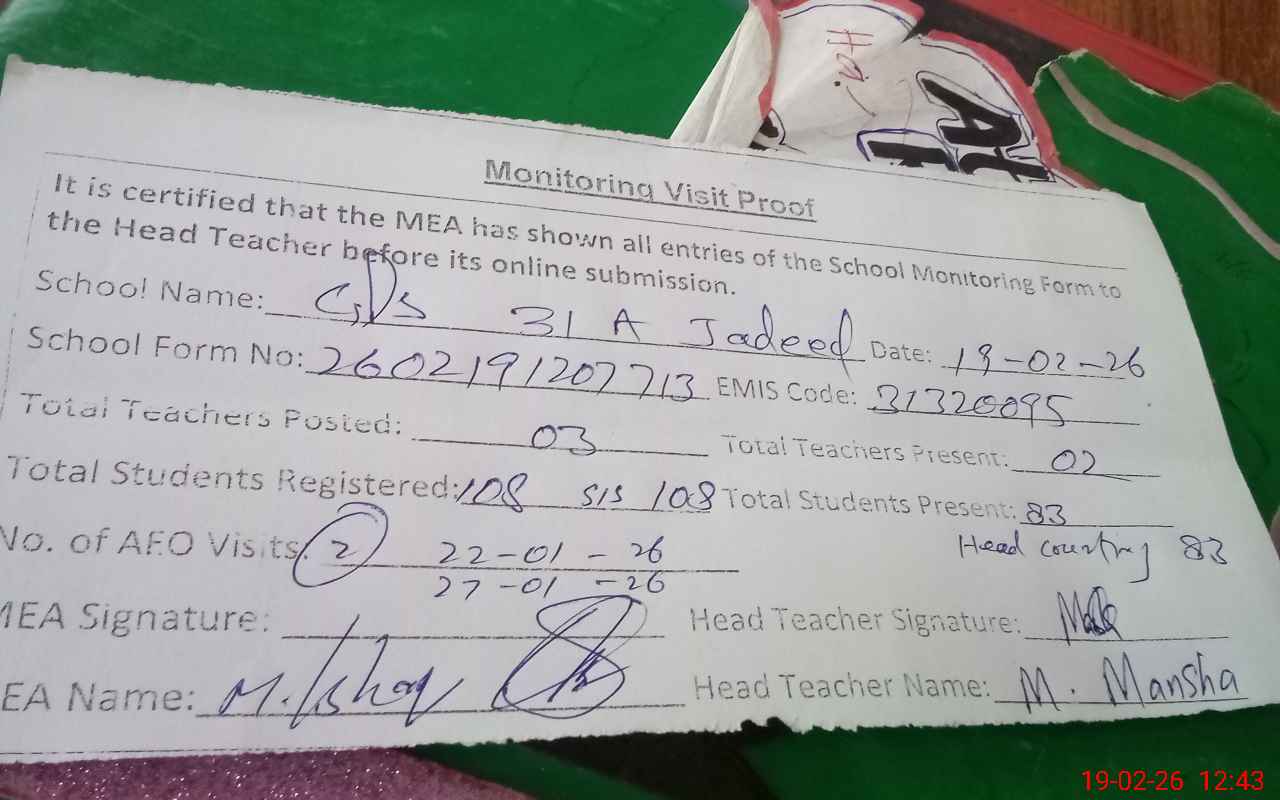 Monitoring Visit Proof
It is certified that the MEA has shown all entries of the School Monitoring Form to
the Head Teacher before its online submission.
School Name: GPS 31 A Jadeed Date: 19-02-26
School Form No: 2602191207713 EMIS Code: 31320095
Total Teachers Posted: 03 Total Teachers Present: 02
Total Students Registered: 108 SIS 108 Total Students Present: 83
Head counting 83
No. of AEO Visits: 2 22-01-26
27-01-26
MEA Signature: Head Teacher Signature:
EA Name: M. Ishaq Head Teacher Name: M. Mansha
19-02-26 12:43